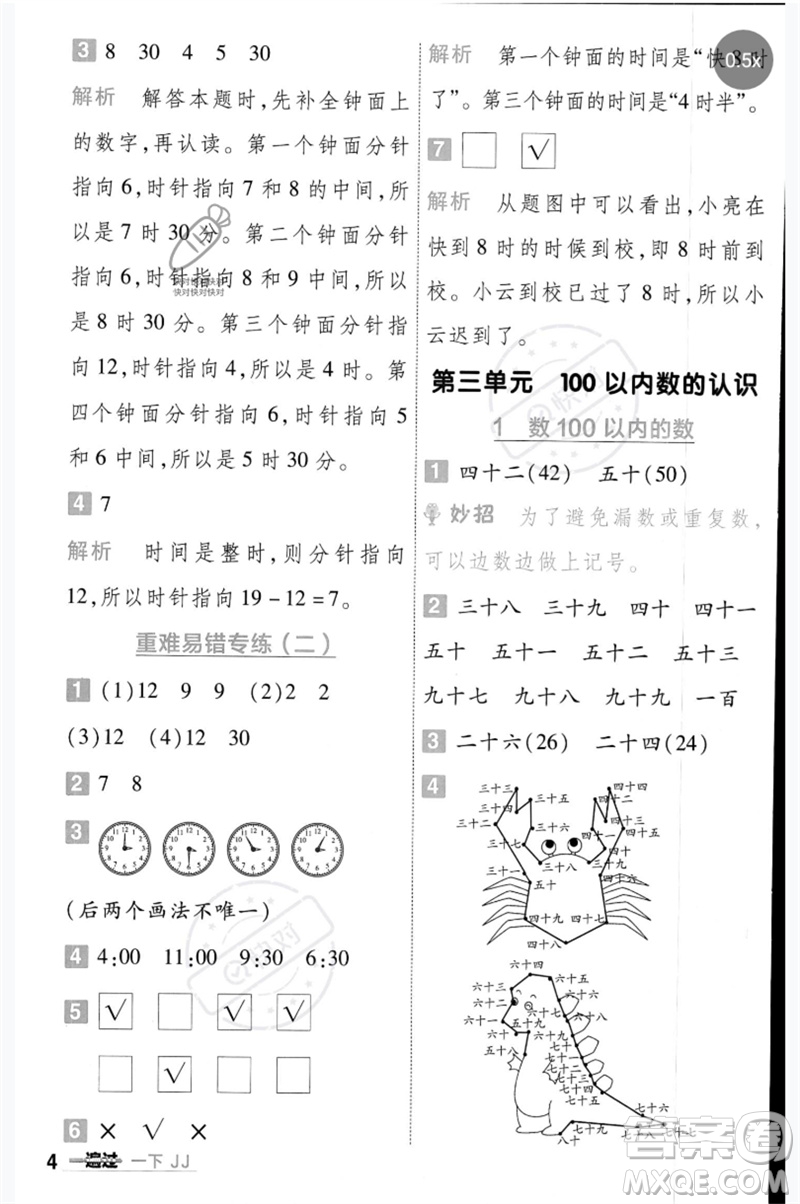 3 8 30 4 5 30
解析 解答本题时,先补全钟面上
的数字,再认读。第一个钟面分针
指向6,时针指向7和8的中间,所
以是7时30分。第二个钟面分针
指向6,时针指向8和9中间,所以
是8时30分。第三个钟面分针指
向12,时针指向4,所以是4时。第
四个钟面分针指向6,时针指向5
和6中间,所以是5时30分。
4 7
解析 时间是整时,则分针指向
12,所以时针指向19-12=7。
重难易错专练(二)
1 (1)12 9 9 (2)2 2
(3)12 (4)12 30
2 7 8
3
(后两个画法不唯一)
4 4:00 11:00 9:30 6:30
5 √ √ √
√
6 × √ ×
4 一遍过 一下 JJ
解析 第一个钟面的时间是“快8时
了”。第三个钟面的时间是“4时半”。
0.5x
7 √
解析 从题图中可以看出,小亮在
快到8时的时候到校,即8时前到
校。小云到校已过了8时,所以小
云迟到了。
第三单元 100以内数的认识
1 数100以内的数
1 四十二(42) 五十(50)
妙招 为了避免漏数或重复数,
可以边数边做上记号。
2 三十八 三十九 四十 四十一
五十 五十一 五十二 五十三
九十七 九十八 九十九 一百
3 二十六(26) 二十四(24)
4
三十三 四十四
三十五 四十二
三十二 三十六 四十 四十五
三十八 三十九
三十一 五十 四十六
四十九 四十七
四十八
六十四
六十三 六十五
六十二
六十一 五十九
五十八
七十一
七十六
七十九 七十七
八十
快对快对快对
答案圈
MXQE.COM